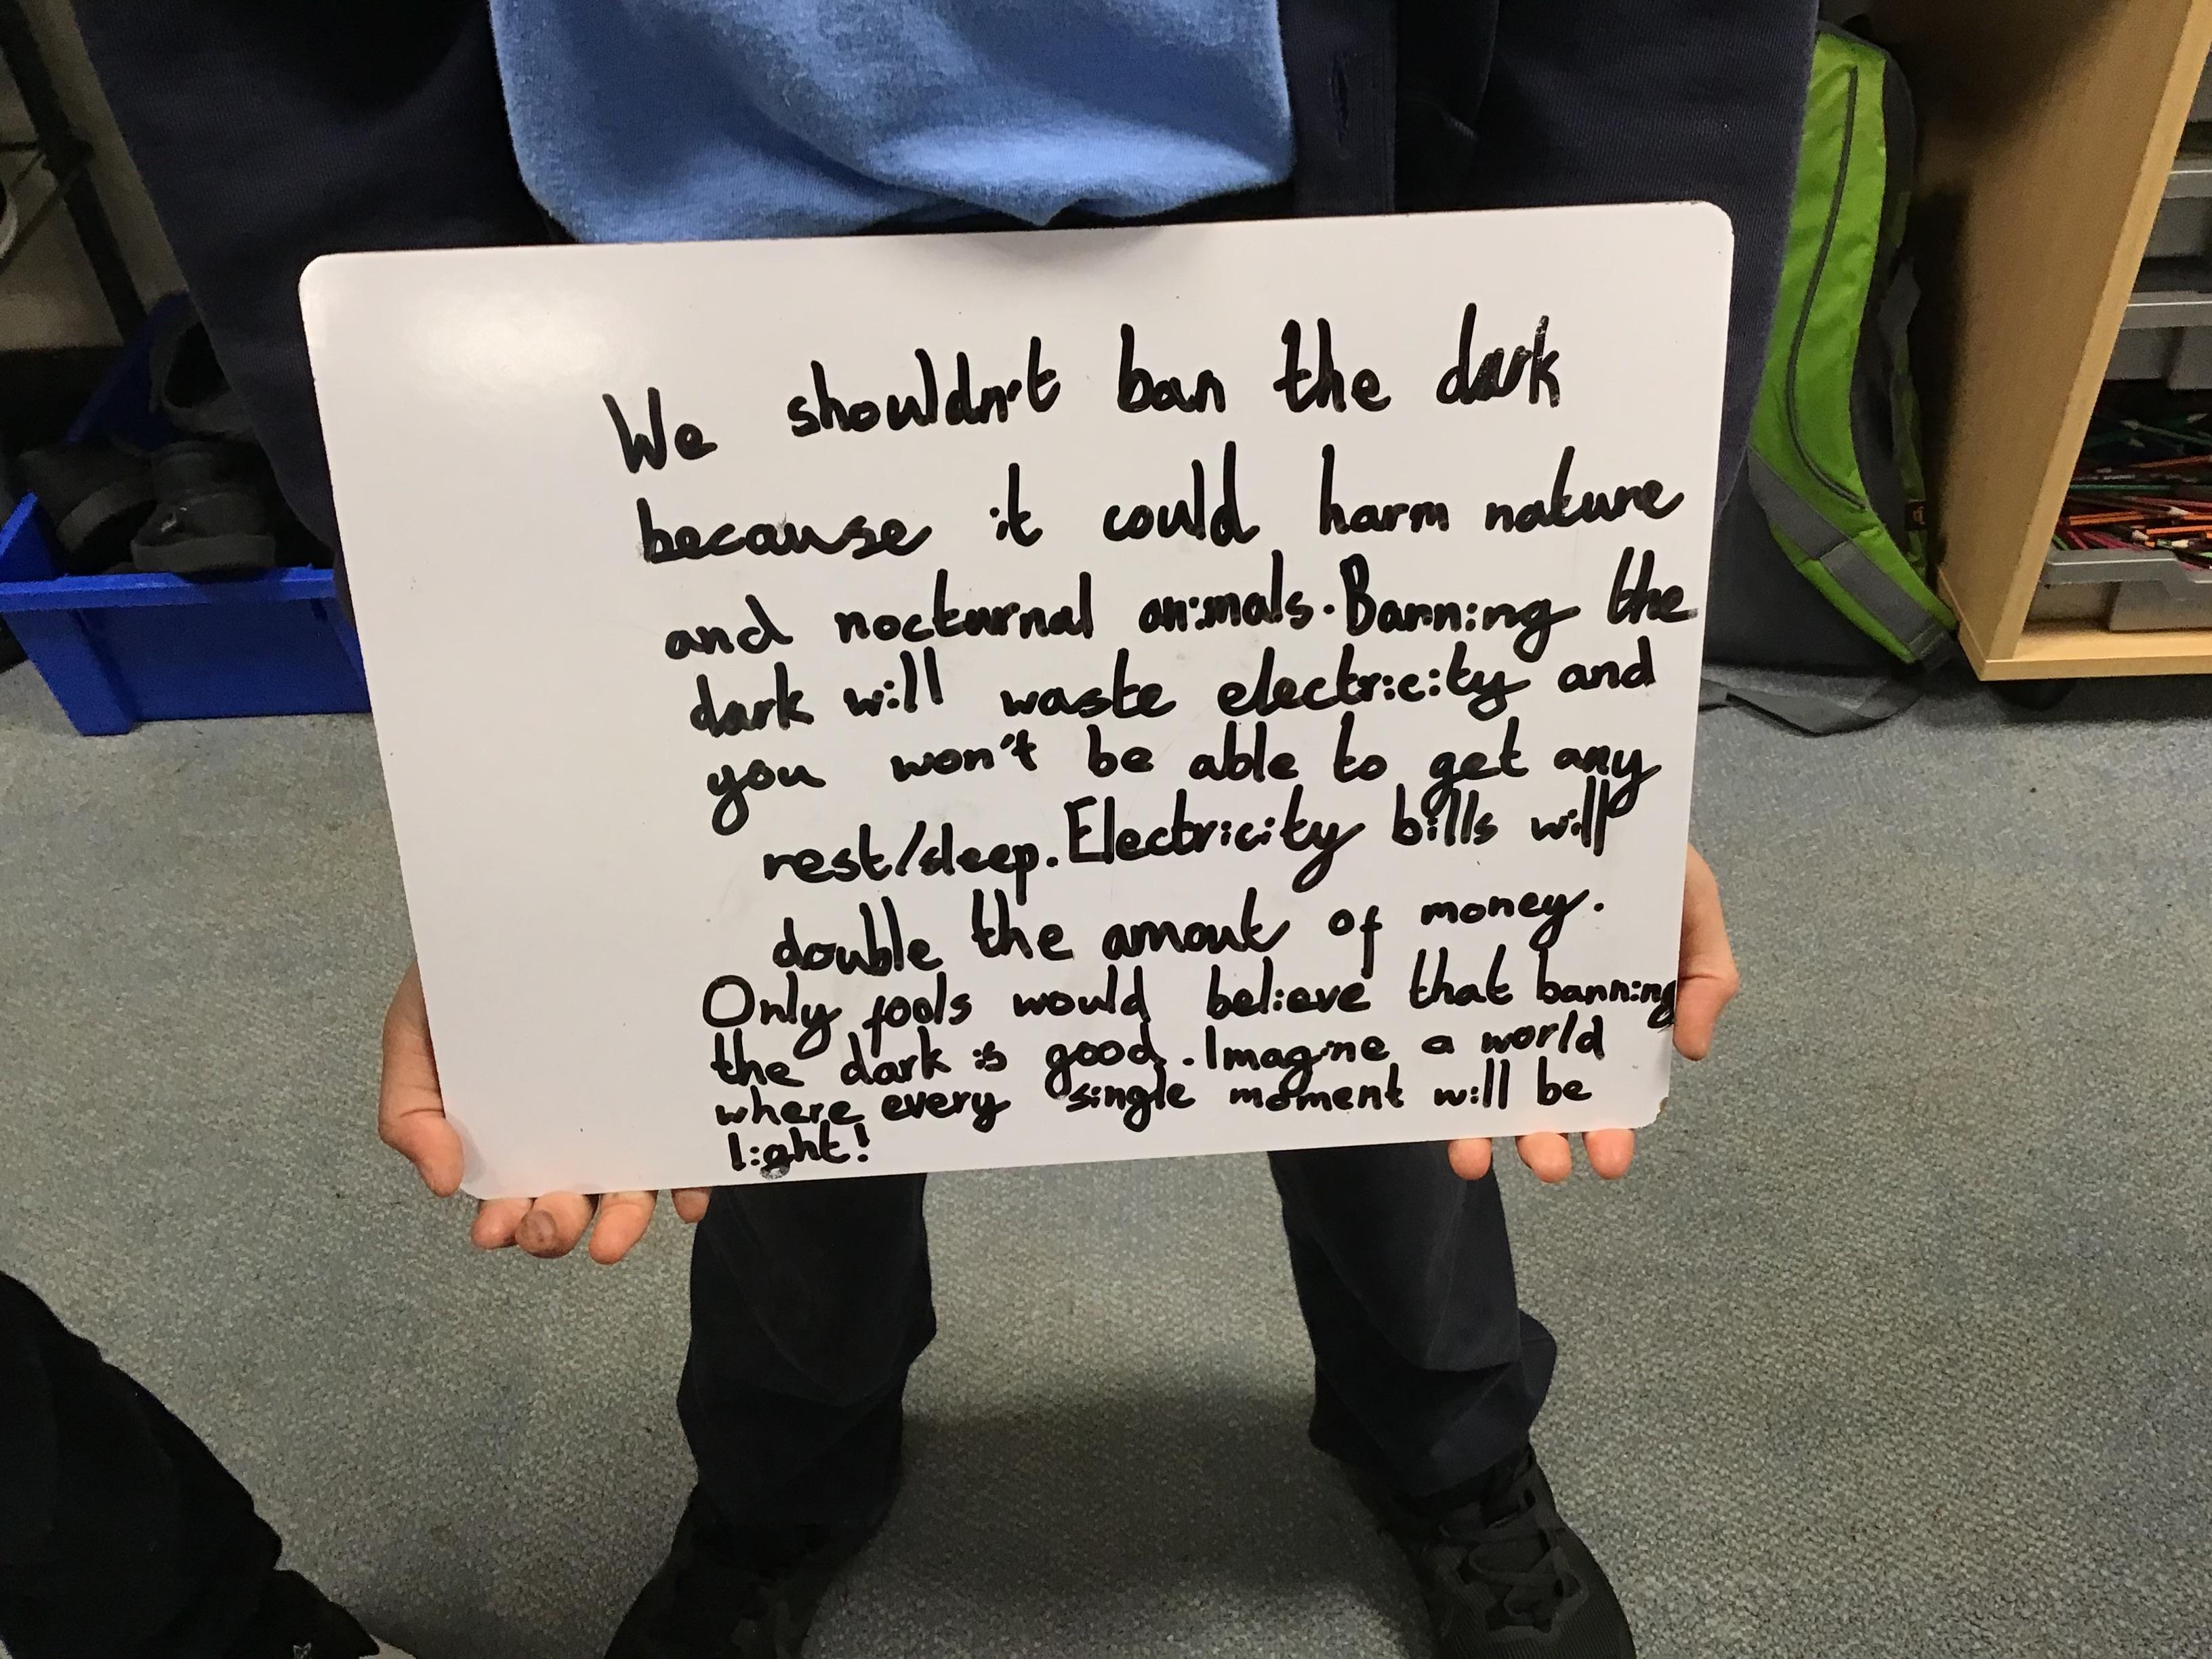 We shouldn't ban the dark
because it could harm nature
and nocturnal animals. Banning the
dark will waste electricity and
you won't be able to get any
rest/sleep. Electricity bills will
double the amout of money.
Only fools would believe that banning
the dark is good. Imagine a world
where every single moment will be
light!